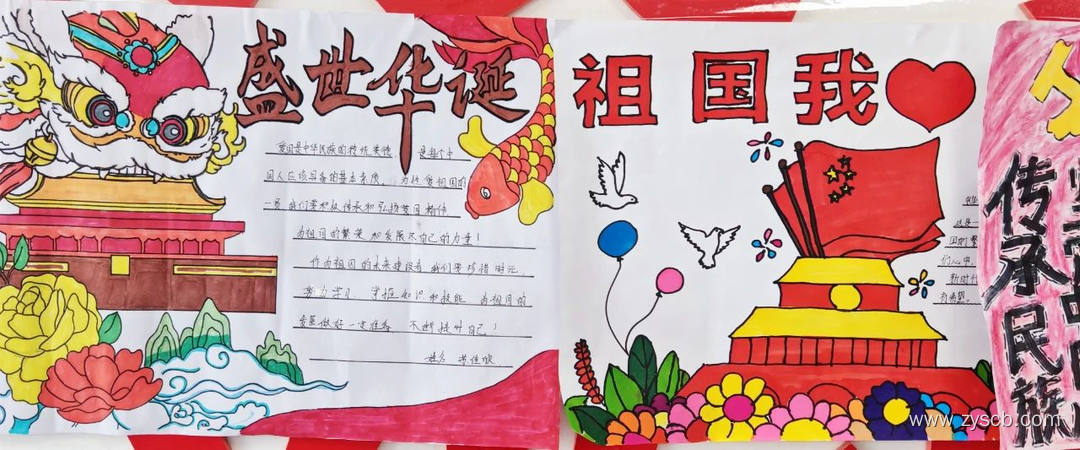 盛世华诞
爱国是中华民族的传统美德, 是每个中
国人应该具备的基本素质。为
一员我们要积极传承和弘扬爱国精神
为祖国的繁荣和发展尽自己的力量!
作为祖国的未来建设者我们要珍惜时光,
努力学习, 掌握知识和技能, 为祖国的
发展做好一定准备, 不断提升自己!
姓名
祖国我
国的繁
们心中
新时代
有希望。
传承民族
www.zyscb.com